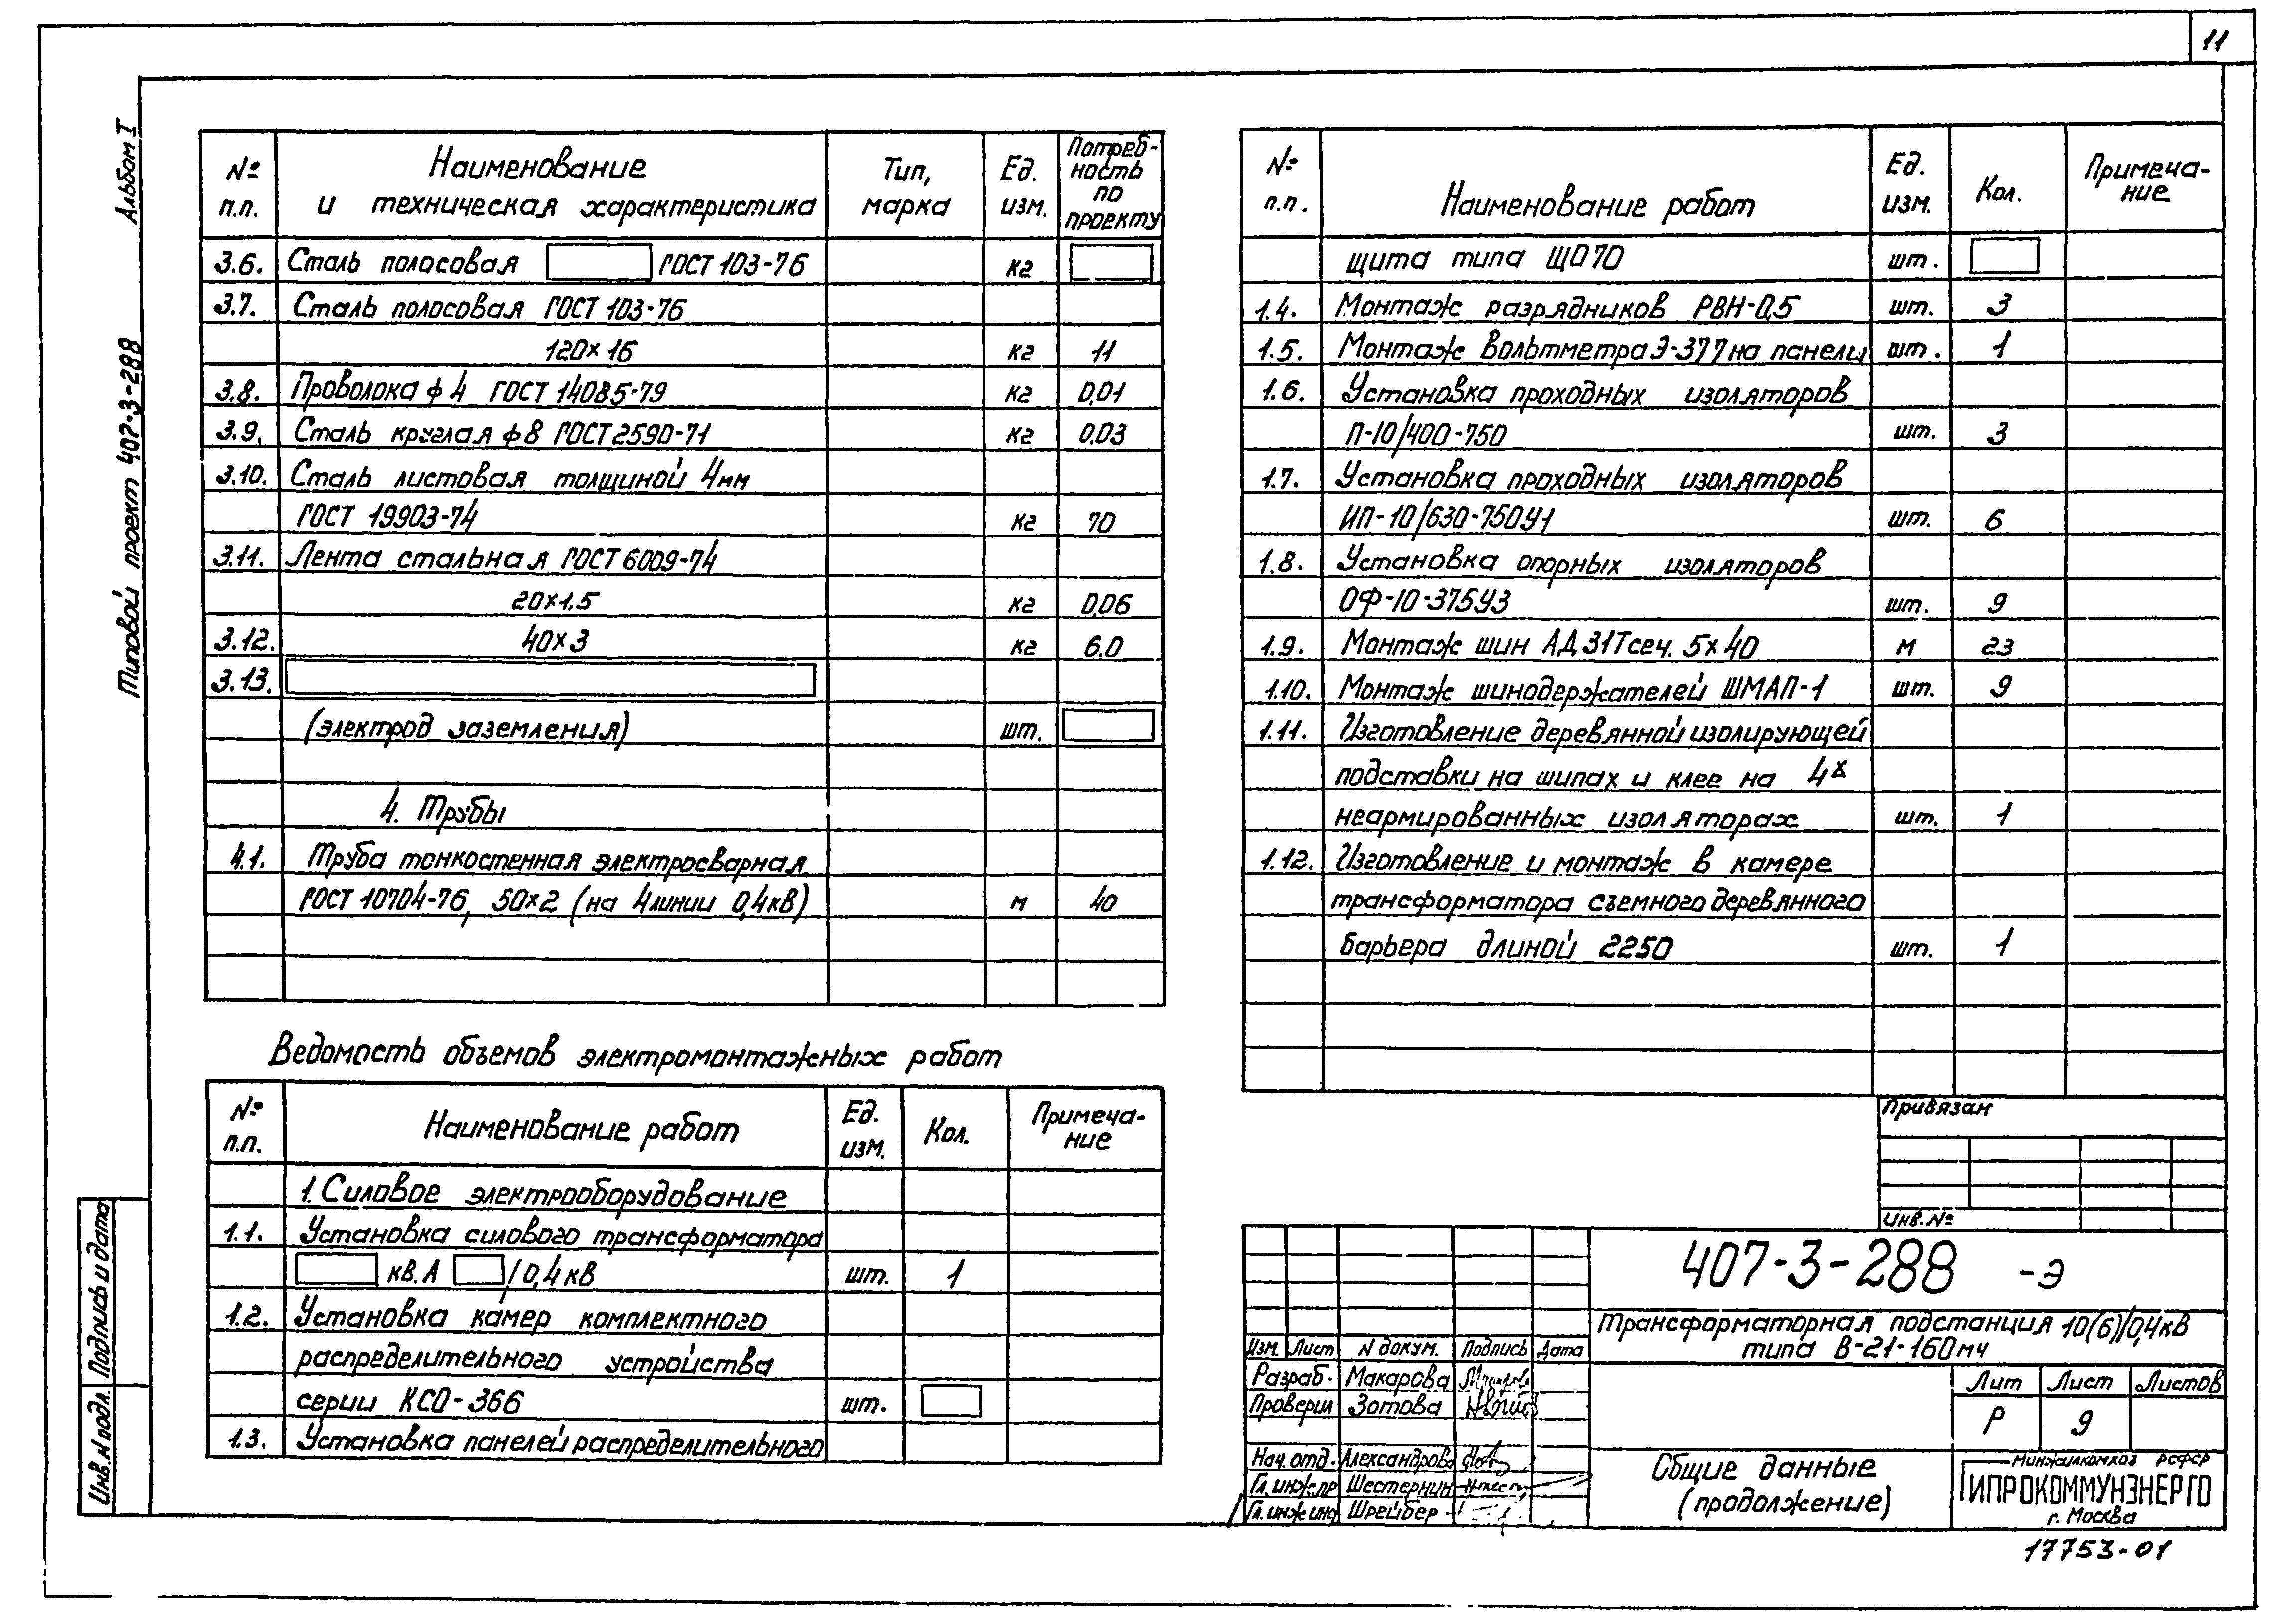 11
Альбом I
Типовой проект 407-3-288
№ п.п. Наименование и техническая характеристика Тип, марка Ед. изм. Потреб-ность по проекту
3.6. Сталь полосовая ГОСТ 103-76 кг
3.7. Сталь полосовая ГОСТ 103-76
120×16 кг 11
3.8. Проволока ф 4 ГОСТ 14085-79 кг 0,01
3.9. Сталь круглая ф8 ГОСТ 2590-71 кг 0.03
3.10. Сталь листовая толщиной 4мм
ГОСТ 19903-74 кг 70
3.11. Лента стальная ГОСТ 6009-74
20×1.5 кг 0,06
3.12. 40×3 кг 6.0
3.13.
(электрод заземления) шт.
4. Трубы
4.1. Труба тонкостенная электросварная
ГОСТ 10704-76, 50×2 (на 4 линии 0,4кВ) м 40
Ведомость объемов электромонтажных работ
№ п.п. Наименование работ Ед. изм. Кол. Примеча-ние
1. Силовое электрооборудование
1.1. Установка силового трансформатора
кв.А /0,4кв шт. 1
1.2. Установка камер комплектного
распределительного устройства
серии КСО-366 шт.
1.3. Установка панелей распределительного
№ п.п. Наименование работ Ед. изм. Кол. Примеча-ние
щита типа ЩО70 шт.
1.4. Монтаж разрядников РВН-0,5 шт. 3
1.5. Монтаж вольтметра Э-377 на панели шт. 1
1.6. Установка проходных изоляторов
П-10/400-750 шт. 3
1.7. Установка проходных изоляторов
ИП-10/630-750У1 шт. 6
1.8. Установка опорных изоляторов
ОФ-10-375У3 шт. 9
1.9. Монтаж шин АД31Т сеч. 5×40 м 23
1.10. Монтаж шинодержателей ШМАП-1 шт. 9
1.11. Изготовление деревянной изолирующей
подставки на шипах и клее на 4х
неармированных изоляторах шт. 1
1.12. Изготовление и монтаж в камере
трансформатора съемного деревянного
барьера длиной 2250 шт. 1
Привязан
Инв. №
407-3-288 -Э
Трансформаторная подстанция 10(6)/0,4кВ
типа В-21-160мч
Изм. Лист N докум. Подпись Дата
Разраб. Макарова
Проверил Зотова
Нач. отд. Александрова
Гл. инж. пр Шестернин
Гл. инж инд Шрейбер
Лит Лист Листов
Р 9
Общие данные
(продолжение)
Минжилкомхоз РСФСР
ГИПРОКОММУНЭНЕРГО
г. Москва
17753-01
Подпись и дата
Инв. N подл.